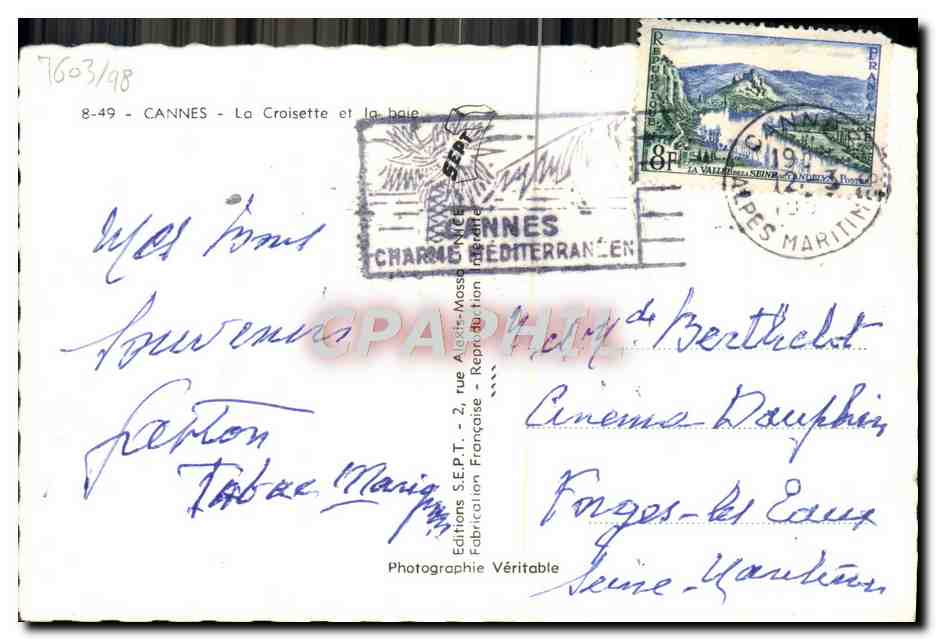 7603/98
8-49 - CANNES - La Croisette et la baie
SEPT
CANNES
CHARME MÉDITERRANÉEN
REPUBLIQUE FRANÇAISE
8F
LA VALLÉE DE LA SEINE AUX ANDELYS
POSTES
CANNES
ALPES MARITIMES
Mes bons
Souvenirs
Gaston
Tabac Marigny
Editions S.E.P.T. - 2, rue Alexis-Mossa - NICE
Fabrication Française - Reproduction Interdite
Photographie Véritable
CPAPHIL
Berthelot
Cinéma Dauphin
Forges-les Eaux
Seine-Maritime